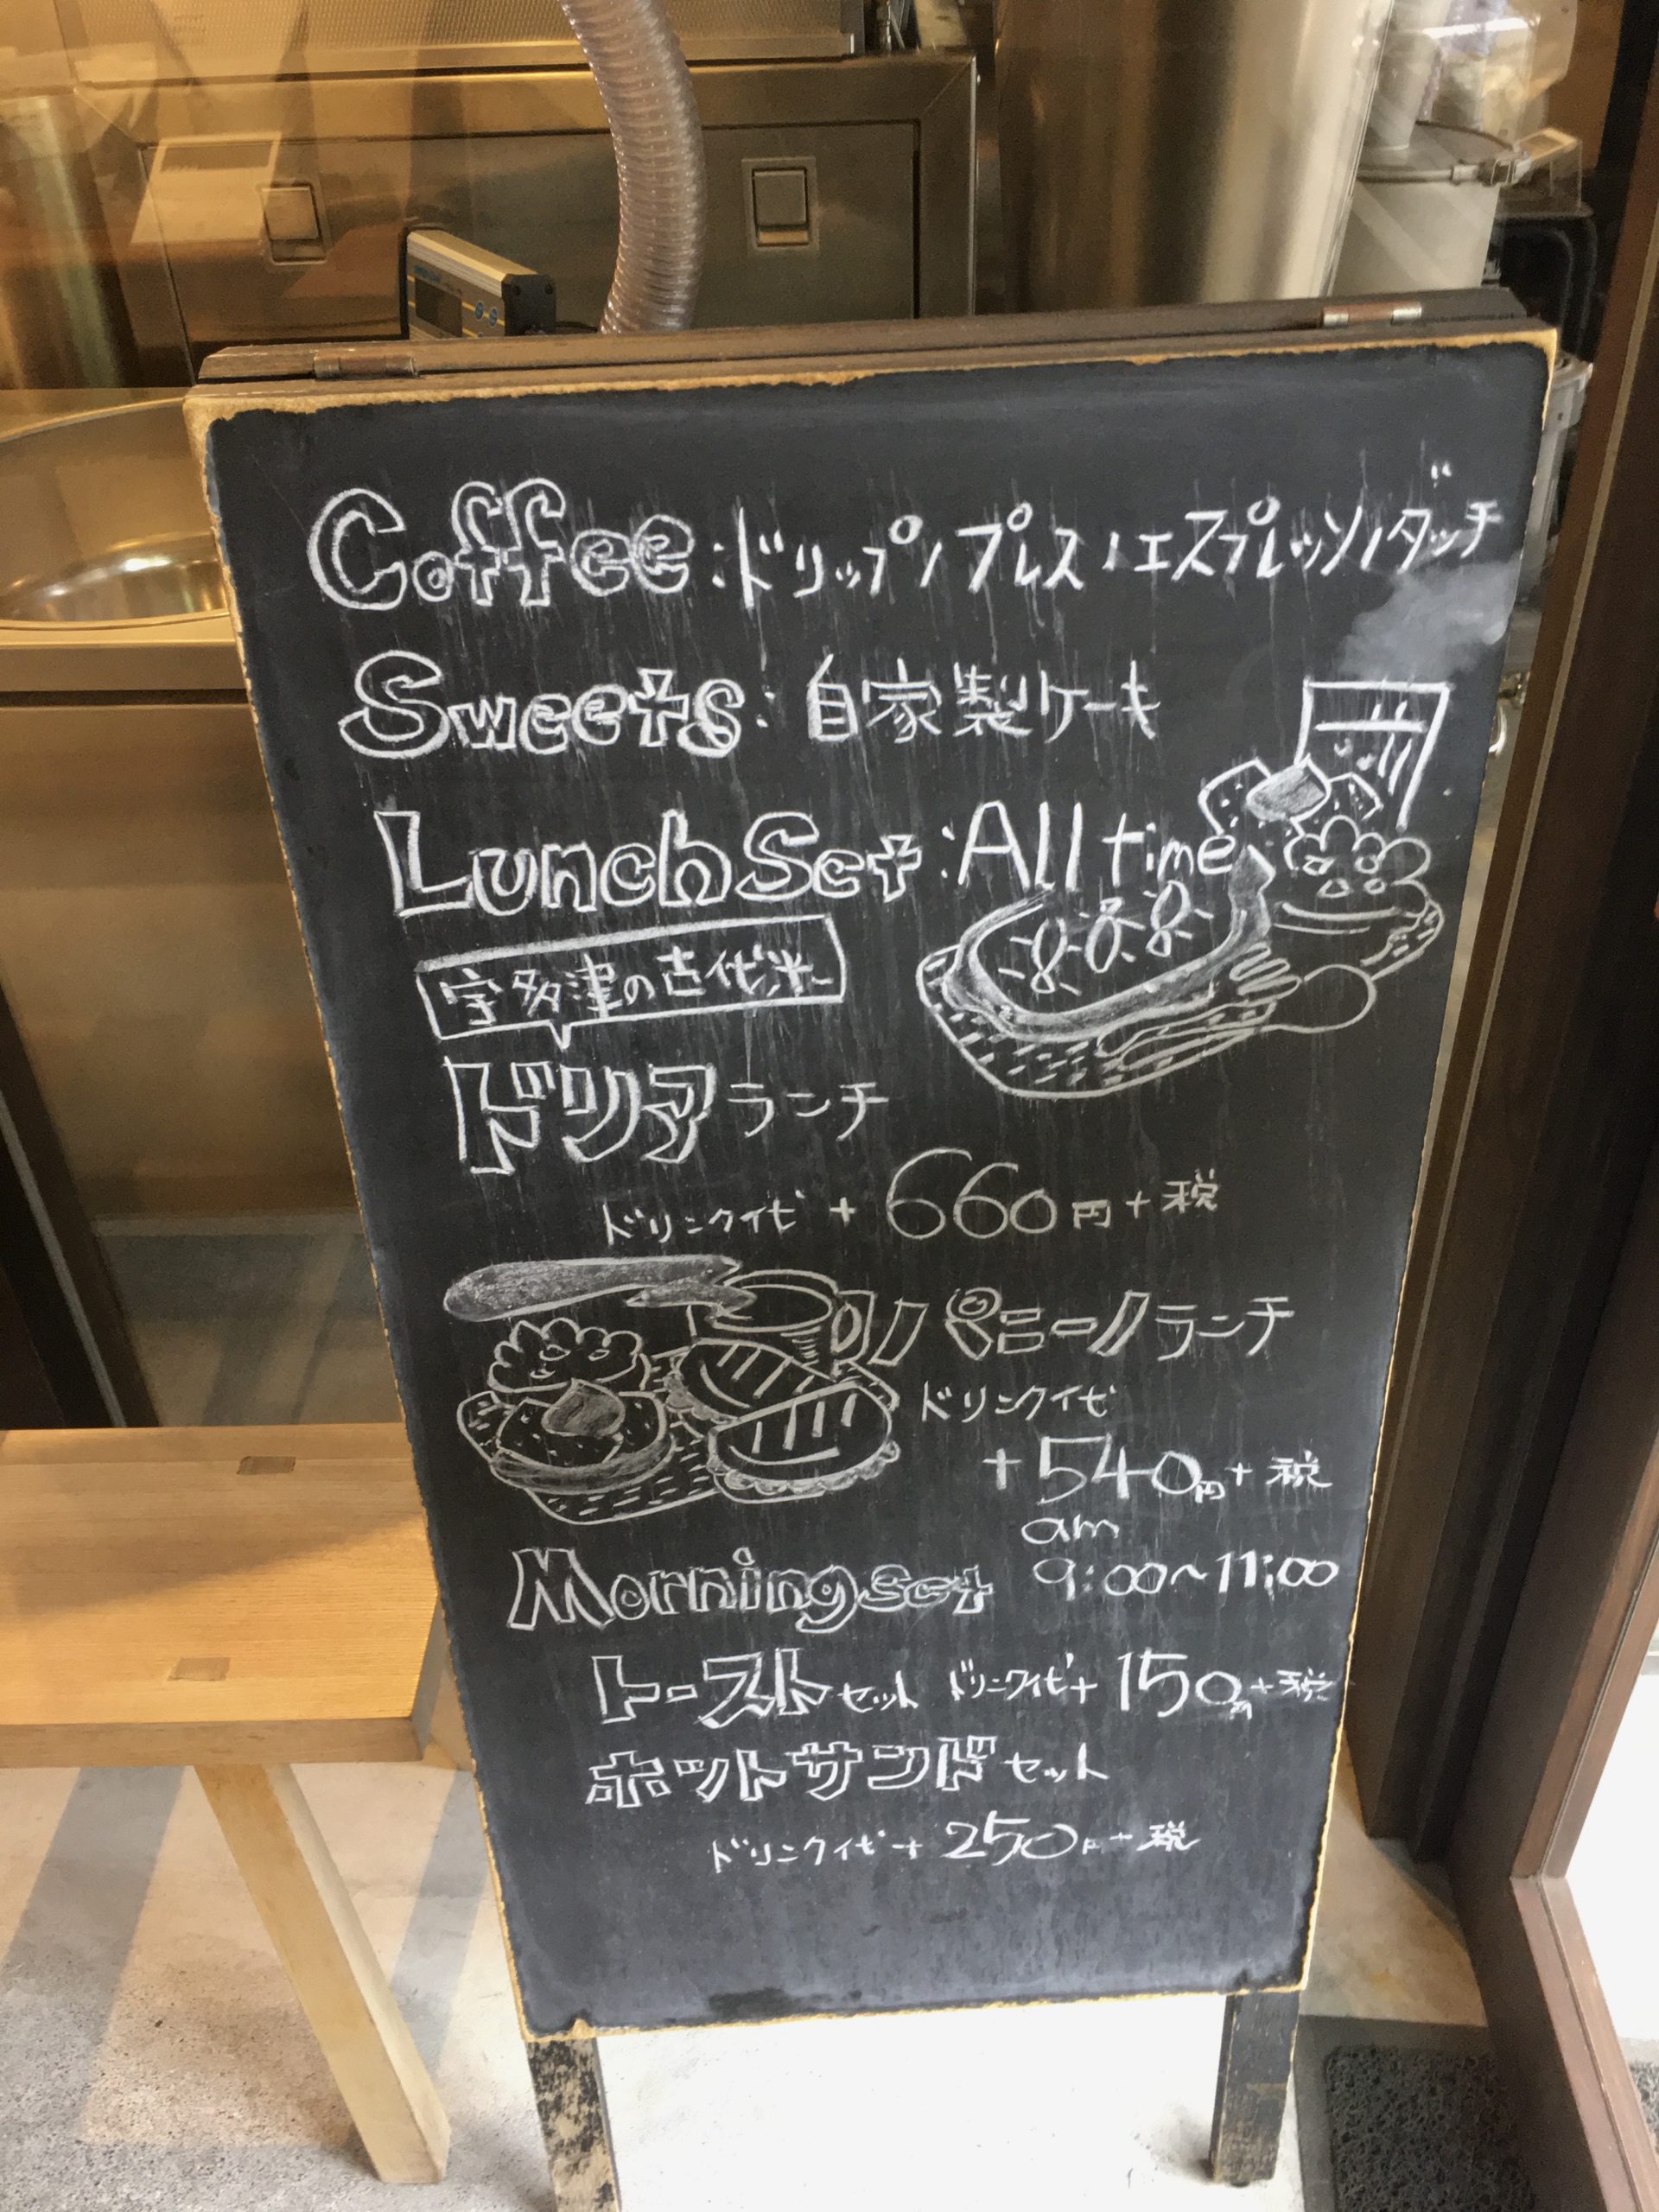 Coffee:ドリップ/プレス/エスプレッソ/ダッチ
Sweets:自家製ケーキ
Lunch Set:All time
宇多津の古代米
ドリアランチ
ドリンク代+660円+税
パニーノランチ
ドリンク代
+540円+税
am
Morning set 9:00~11:00
トーストセット ドリンク代+150円+税
ホットサンドセット
ドリンク代+250円+税